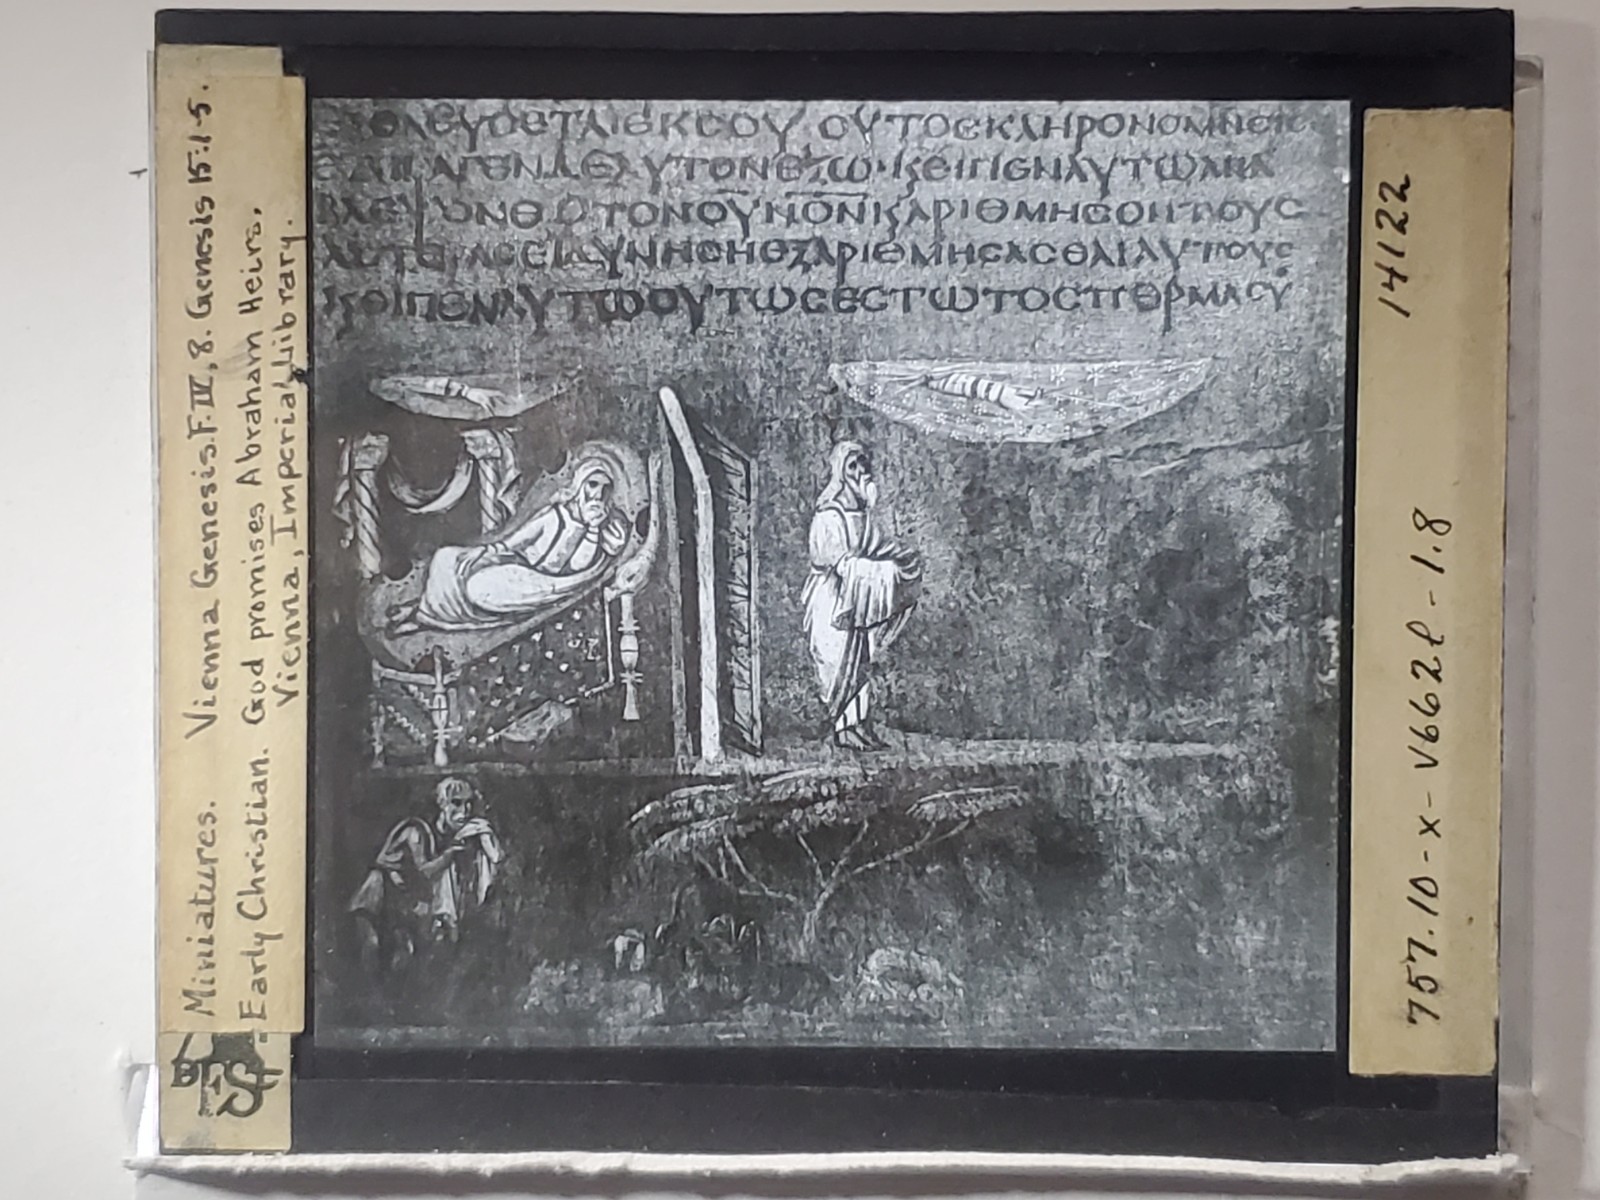 Miniatures. Vienna Genesis. F. IV, 8. Genesis 15:1-5.
Early Christian. God promises Abraham Heirs.
Vienna, Imperial Library.
ΟΥΤΟΣΚΛΗΡΟΝΟΜΗϹΕΙ
ΑΥΤΟΝΕΞΩ·ΚΕΙΠΕΝΑΥΤΩΑΝΑ
ΤΟΝΟΥΝΟΝΚΑΡΙΘΜΗϹΟΝΤΟΥϹ
ΑϹΤΕΡΑϹΕΙΔΥΝΗϹΗΕΞΑΡΙΘΜΗϹΑϹΘΑΙΑΥΤΟΥϹ
ΚΕΙΠΕΝΑΥΤΩΟΥΤΩϹΕϹΤΩΤΟϹΠΕΡΜΑϹΥ
14122
757.10-x-V662l-1.8